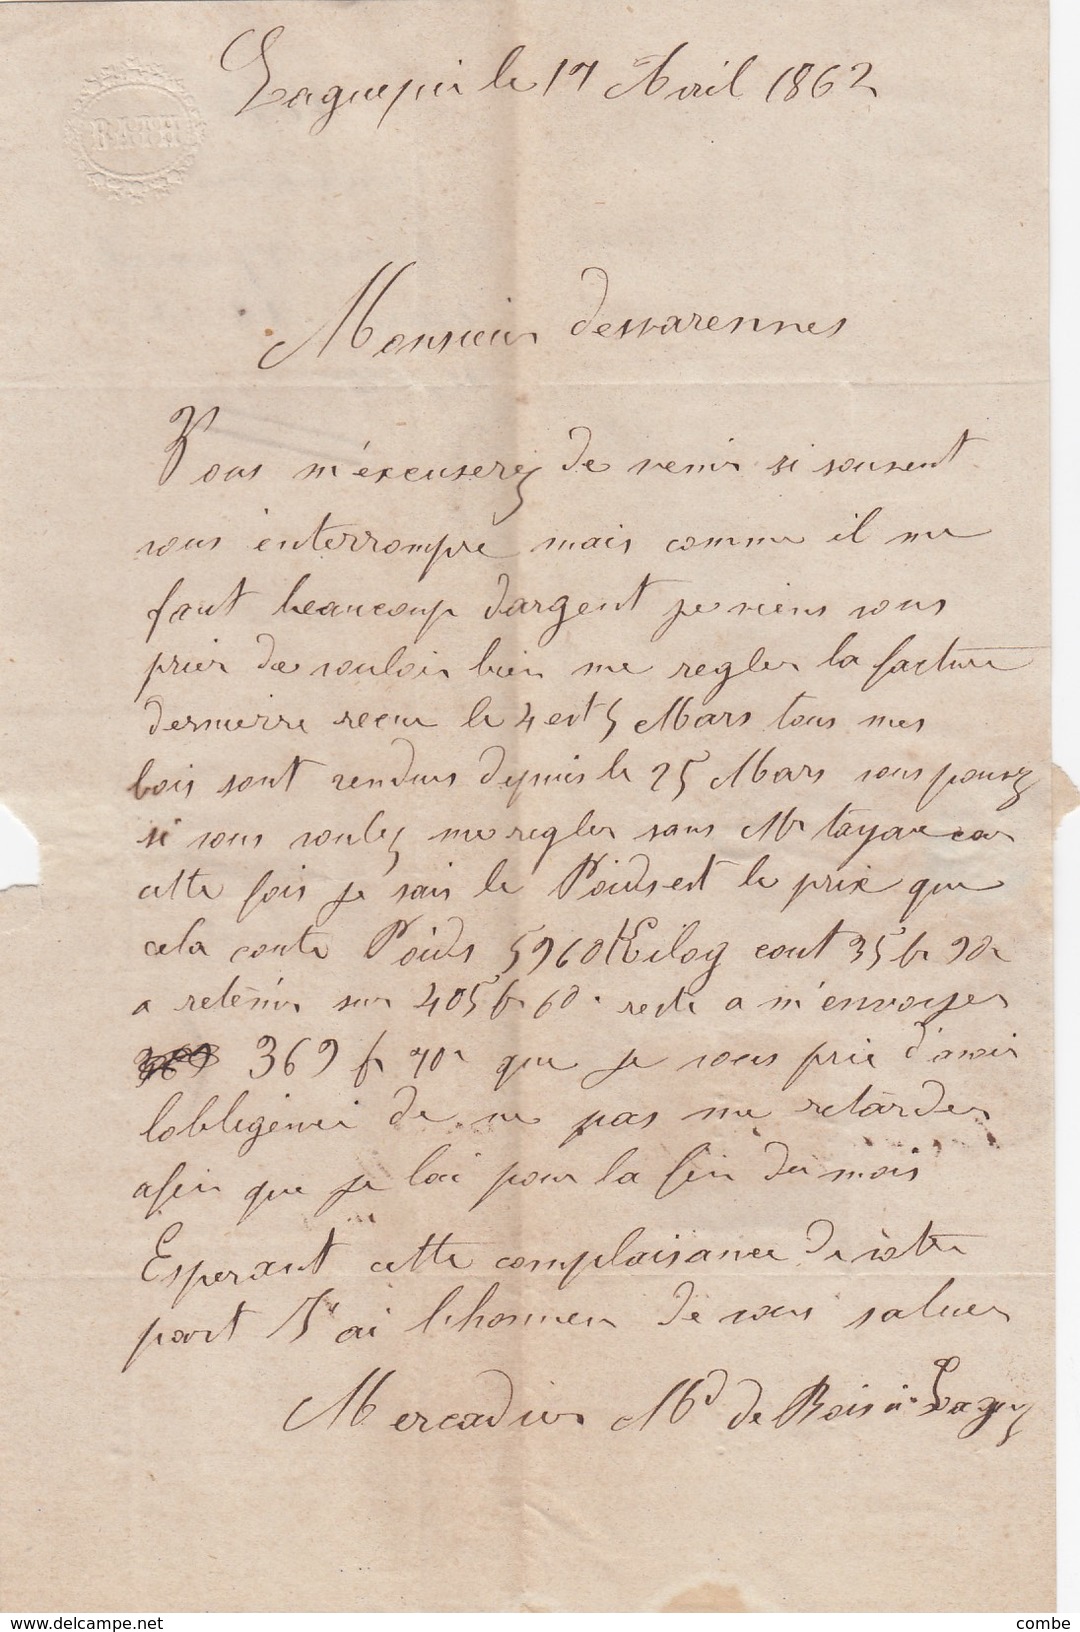 BATH
Laguepie le 17 Avril 1862
Monsieur desvarennes
Vous m'éxcuserez de venir si souvent
vous interrompre mais comme il me
faut beaucoup dargent je viens vous
prier de vouloir bien me regler la facture
dernierre recue le 4 est 5 Mars tous mes
bois sont rendus depuis le 25 Mars vous pouvez
si vous voulez me regler sans Mr tayac car
cette fois je sais le Poids est le prix que
cela coute Poids 5960 Kilog cout 35 fr 90c
a retenir sur 405 fr 60c reste a m'envoyer
369 f 70c que je vous prie d'avoir
lobligence de ne pas me retarder
afin que je lai pour la fin du mois
Esperant cette complaisance de votre
part J'ai lhonneur de vous saluer
Mercadier Md de Bois à Laguep
www.delcampe.net
combe